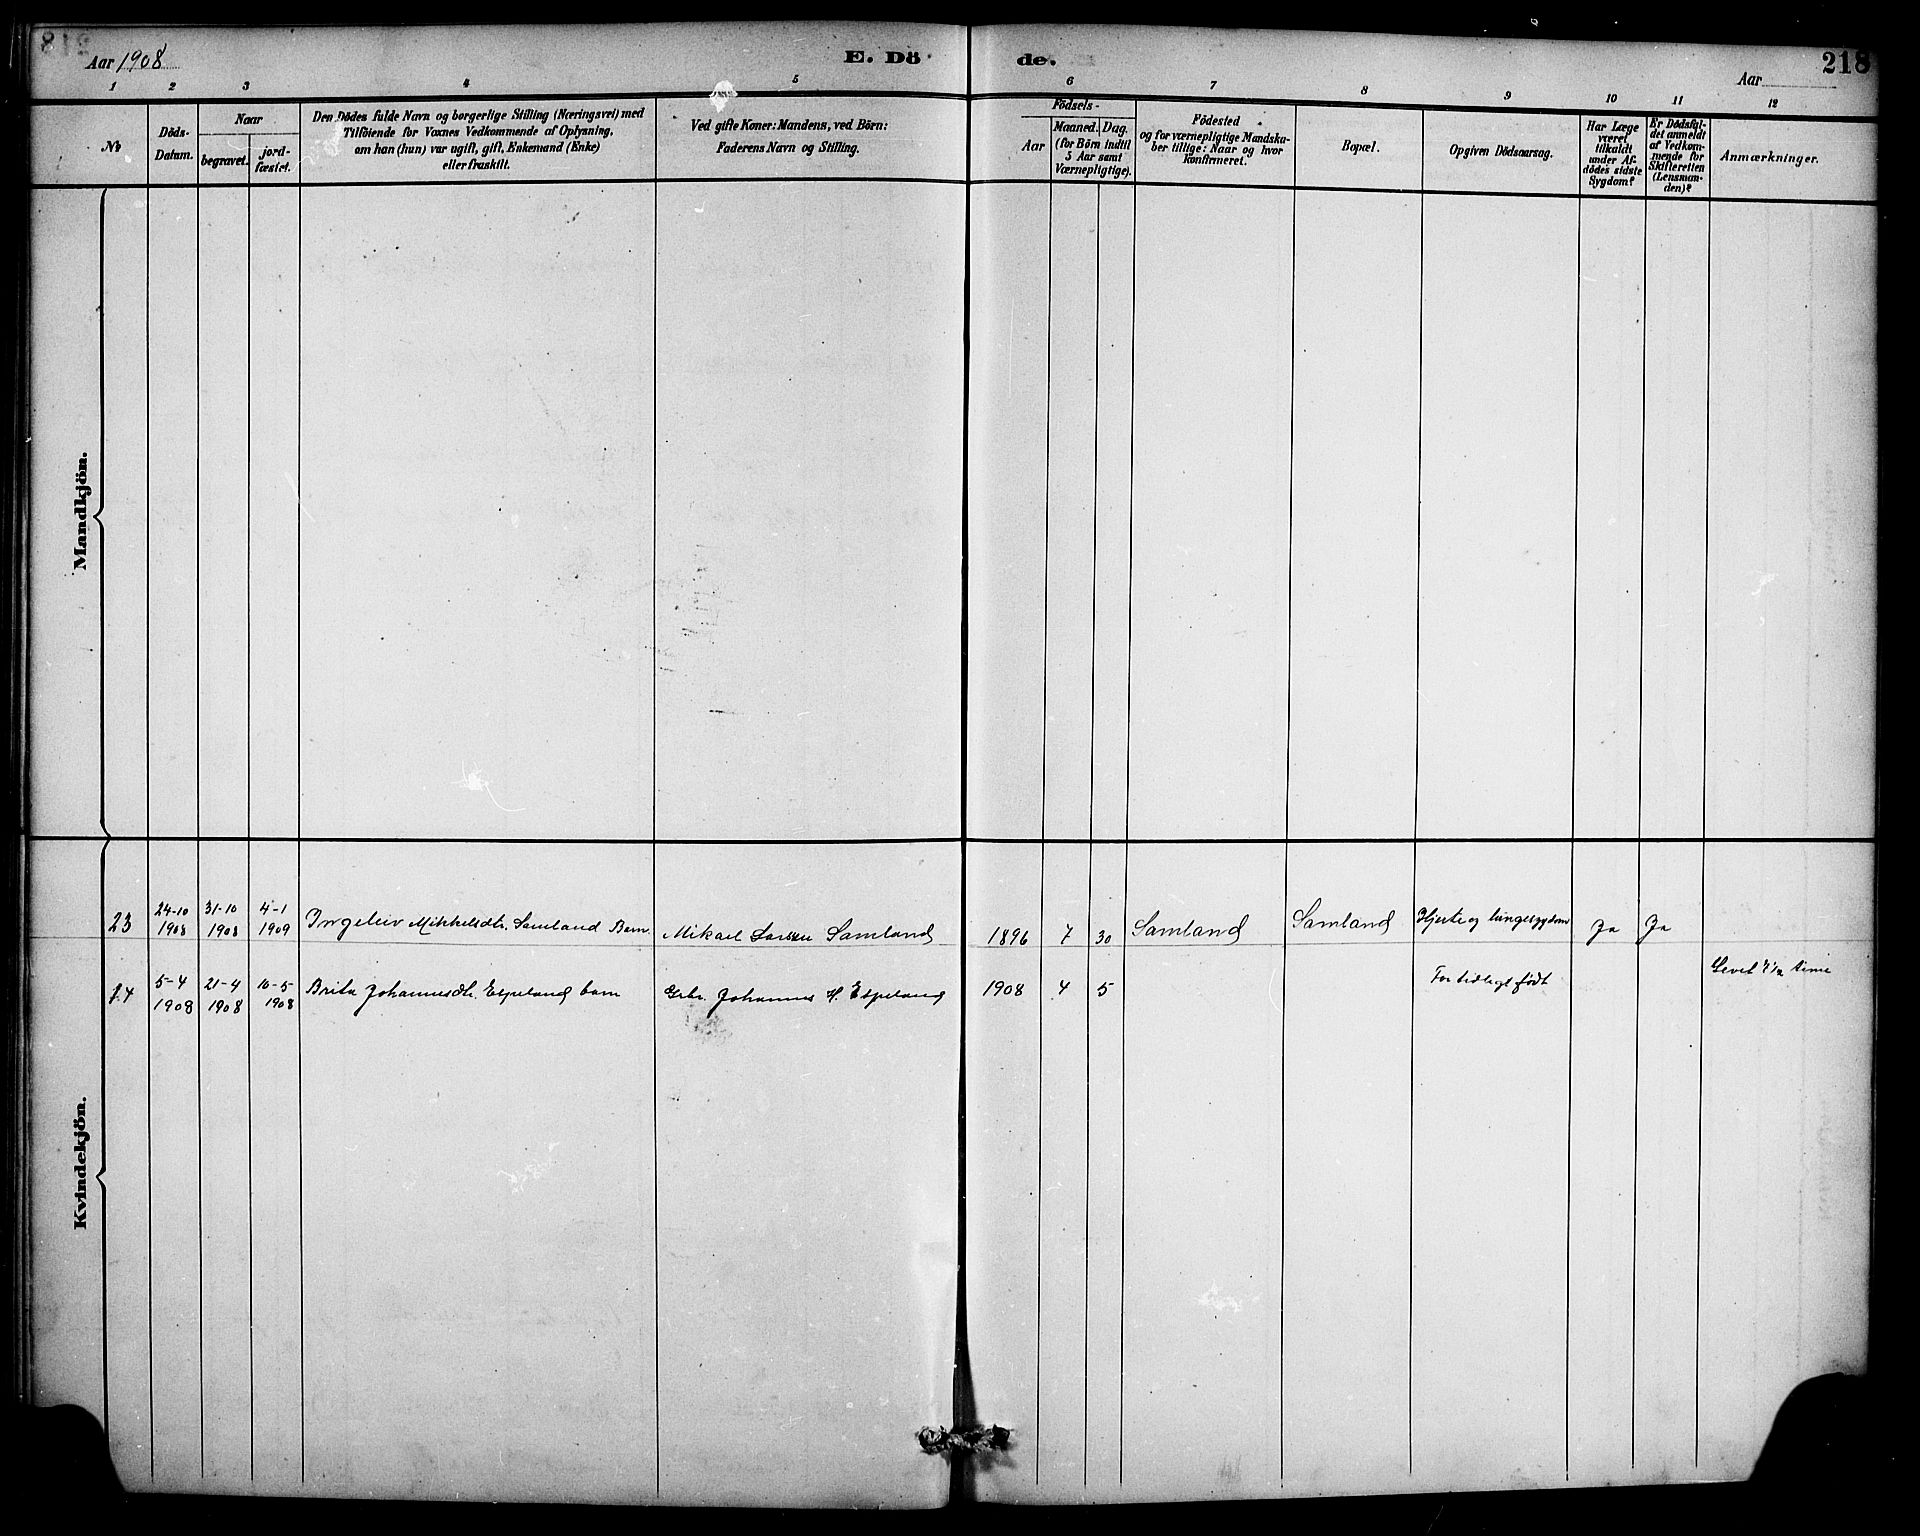 Aar 1908
E. Dö
de.
Aar
218
1 2 3 4 5 6 7 8 9 10 11 12
No
Döds-
Datum.
Naar
begravet.
jord-
fæstet.
Den Dödes fulde Navn og borgerlige Stilling (Næringsvei) med
Tilföiende for Voxnes Vedkommende af Oplysning,
om han (hun) var ugift, gift, Enkemand (Enke)
eller fraskilt.
Ved gifte Koner: Mandens, ved Börn:
Faderens Navn og Stilling.
Födsels-
Aar
Maaned. Dag.
(for Börn indtil
5 Aar samt
Værnepligtige).
Födested
og for værnepligtige Mandska-
ber tillige: Naar og hvor
konfirmeret.
Bopæl.
Opgiven Dödsaarsag.
Har Læge
været
tilkaldt
under Af-
dödes sidste
Sygdom?
Er Dödsfal-
det anmeldt
af Vedkom-
mende for
Skifteretten
(Lensman-
den)?
Anmærkninger.
Mandkjön.
Kvindekjön.
23 24-10 1908 31-10 1908 4-1 1909 Ingeleiv Mikkelsdtr. Samland Barn Mikael Larsen Samland 1896 7 30 Samland Samland Hjerte og lungesygdom Ja Ja
5-4 1908 21-4 1908 10-5 1908 Brita Johannesdtr. Espeland barn Grbr. Johannes H. Espeland 1908 4 5 For tidligt født Levet 1/2 time